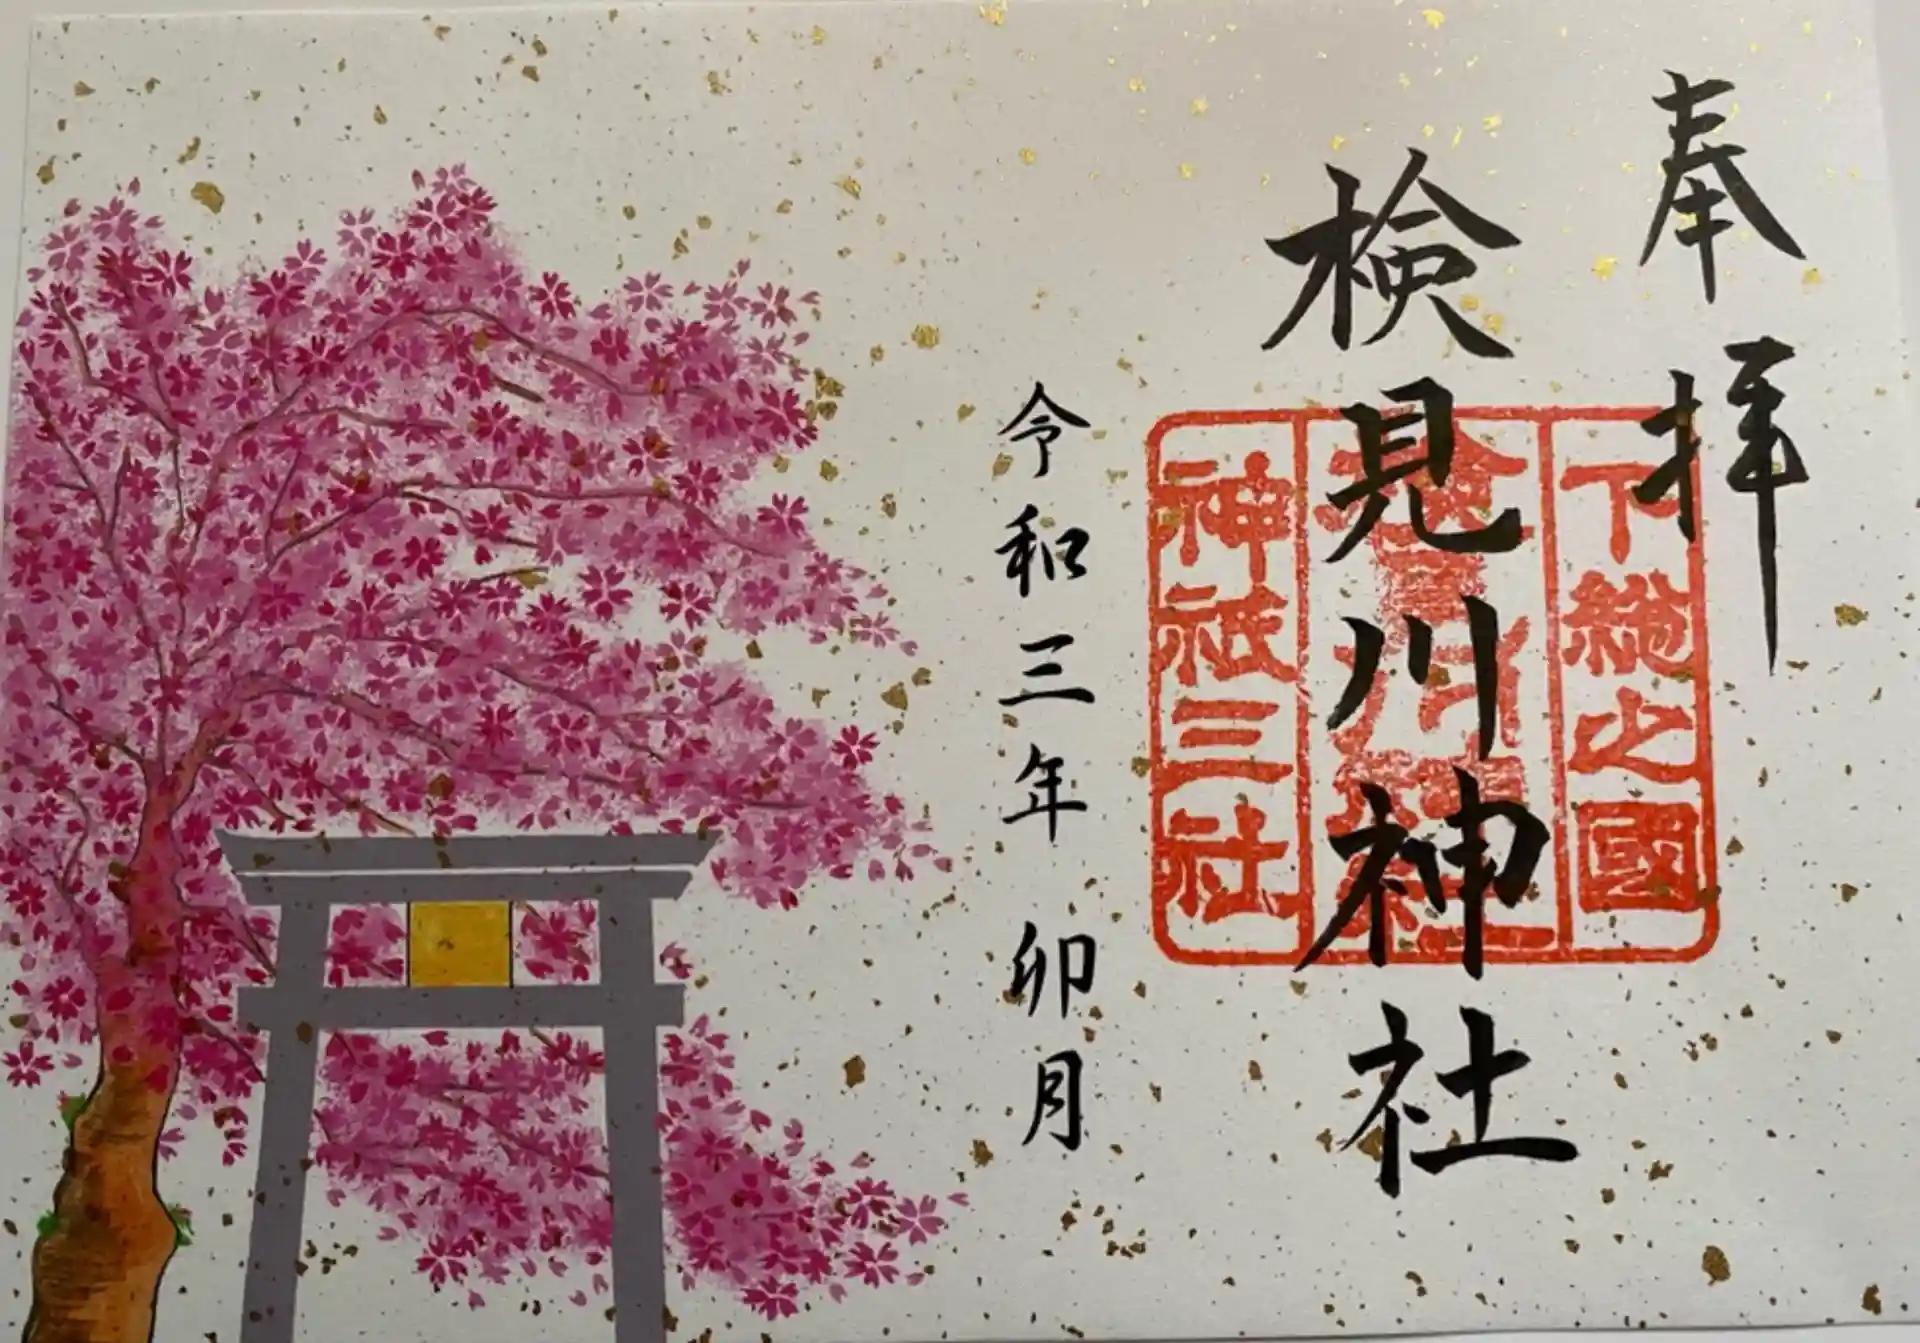 奉拝
下総之國
検見川神社
検見川神社
神祇三社
令和三年 卯月